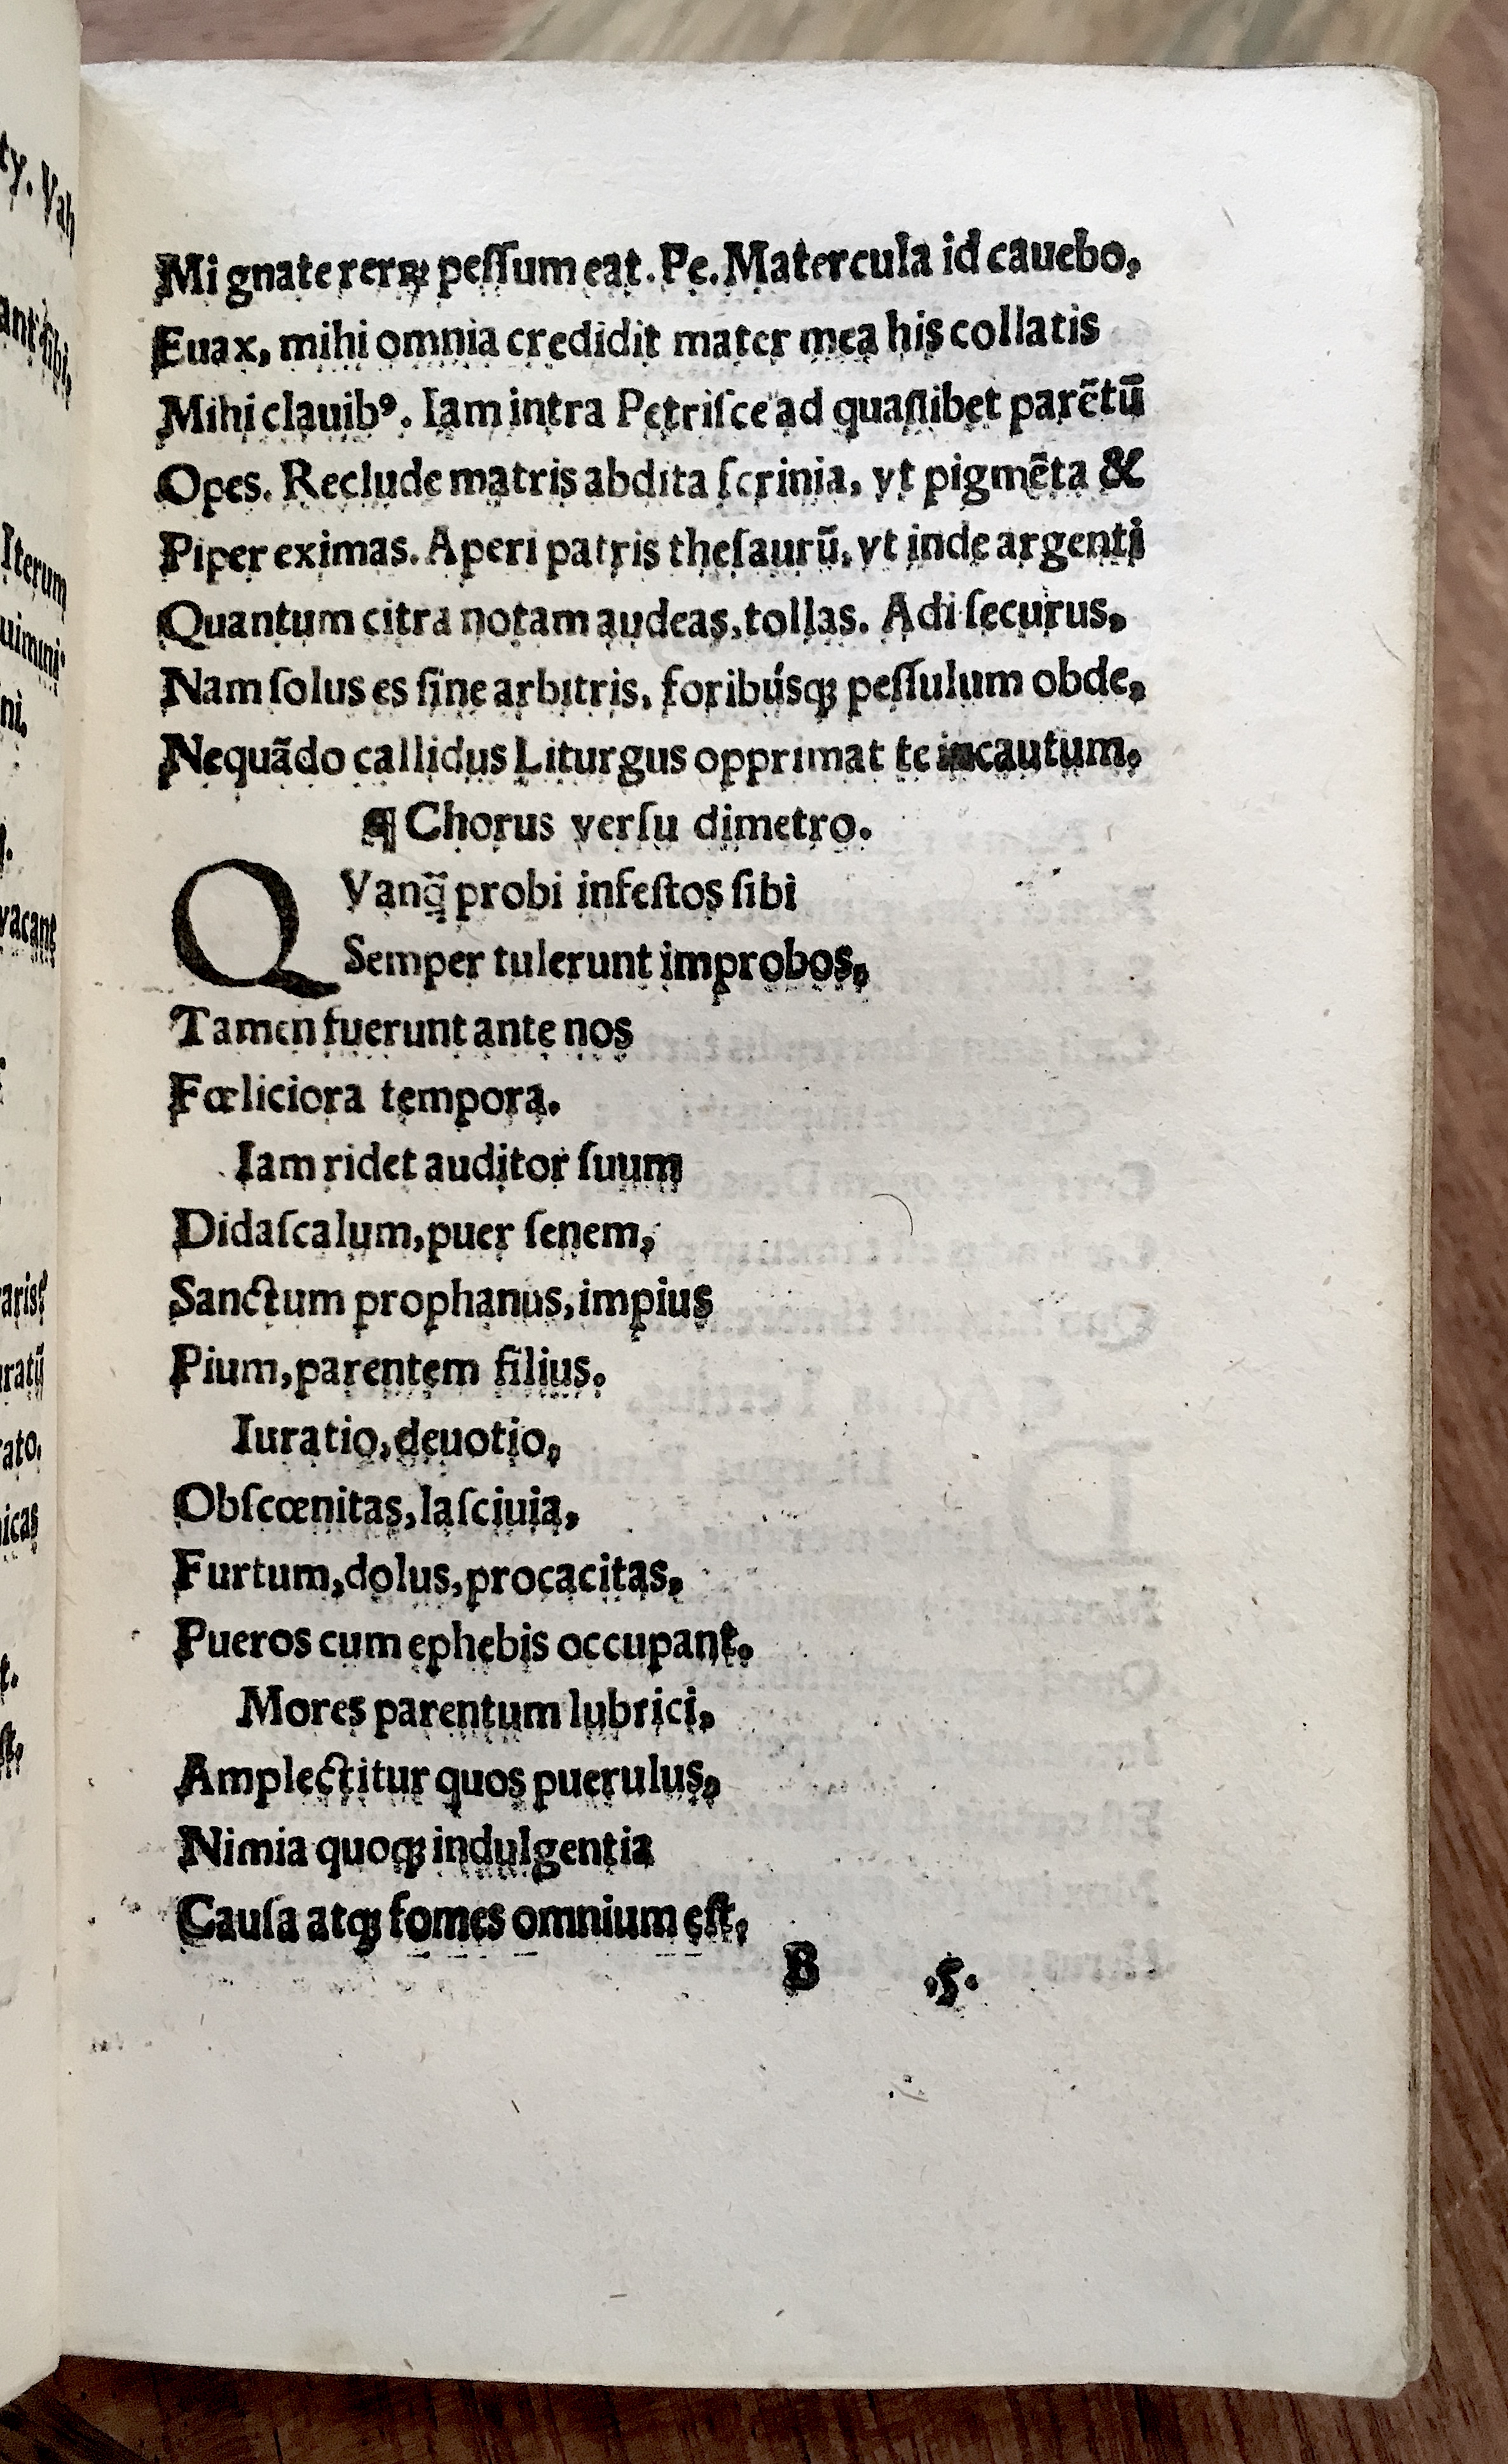 Mi gnate rerꝝ peſſum eat. Pe. Matercula id cauebo,
Euax, mihi omnia credidit mater mea his collatis
Mihi clauibꝰ. Iam intra Petriſce ad quaſlibet parẽtũ
Opes. Reclude matris abdita ſcrinia, vt pigmẽta &
Piper eximas. Aperi patris theſaurũ, vt inde argenti
Quantum citra notam audeas, tollas. Adi ſecurus,
Nam ſolus es ſine arbitris, foribúsqꝫ peſſulum obde,
Nequãdo callidus Liturgus opprimat te incautum.
¶ Chorus verſu dimetro.
QVanq̃ probi infeſtos ſibi
Semper tulerunt improbos,
Tamen fuerunt ante nos
Fœliciora tempora.
Iam ridet auditor ſuum
Didaſcalum, puer ſenem,
Sanctum prophanus, impius
Pium, parentem filius.
Iuratio, deuotio,
Obſcœnitas, laſciuia,
Furtum, dolus, procacitas,
Pueros cum ephebis occupant.
Mores parentum lubrici,
Amplectitur quos puerulus,
Nimia quoqꝫ indulgentia
Cauſa atqꝫ fomes omnium eſt.
B .5.
ty. Vah
Iterum
uimini
ni.
vacant
ato.
icas